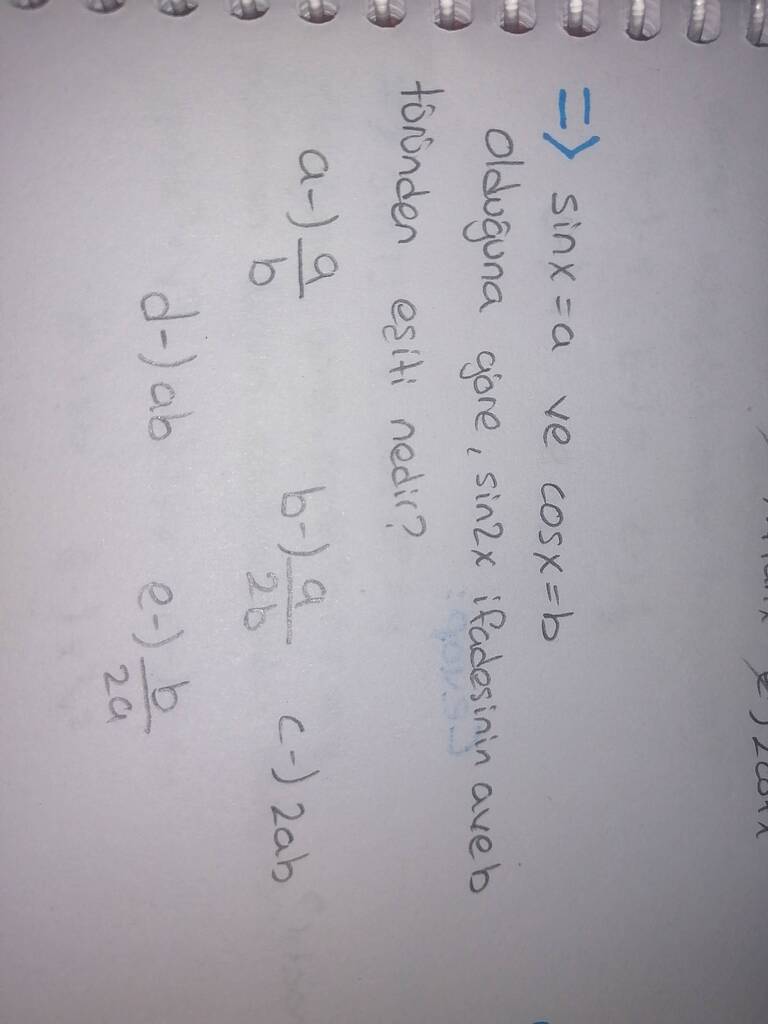 => sinx=a ve cosx=b
olduğuna göre, sin2x ifadesinin a ve b
türünden eşiti nedir?
a-) a/b b-) a/2b c-) 2ab
d-) ab e-) b/2a